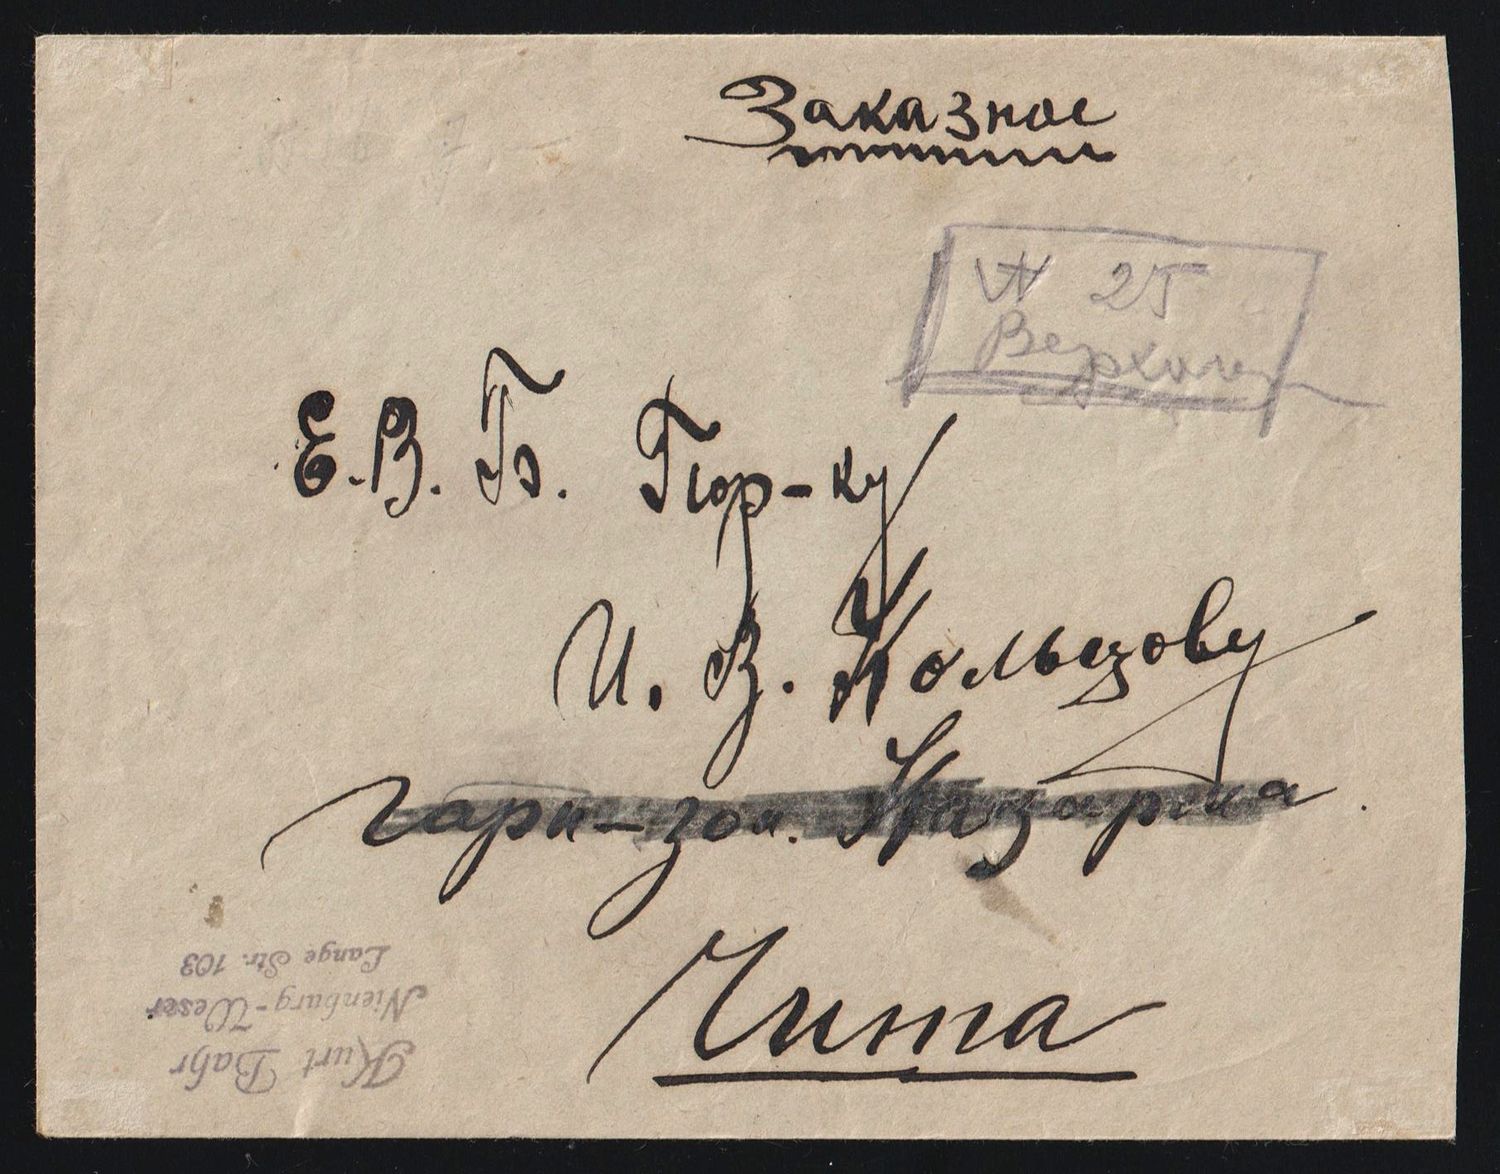 Заказное
№ 25
Верхоле
Е. В. Б. Гюр-ку
И. В. Кольцову
гарн-зон. Казарма.
Чита
Kurt Bahr
Nienburg-Weser
Lange Str. 103